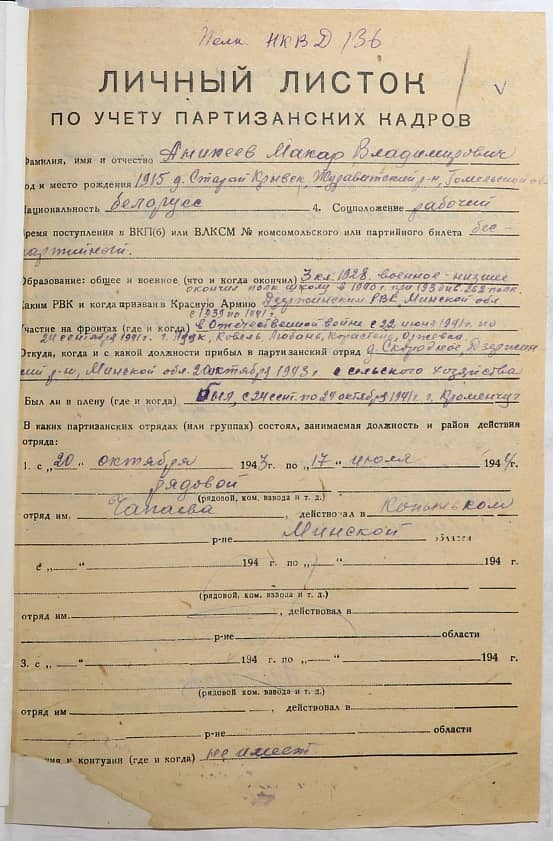 НКВД 136
ЛИЧНЫЙ ЛИСТОК
ПО УЧЕТУ ПАРТИЗАНСКИХ КАДРОВ
Фамилия, имя и отчество Аникеев Макар Владимирович
од и место рождения 1915 д. Старый Кривек, Журавичский р-н, Гомельской об
Национальность белорусс 4. Соцположение рабочий
Время поступления в ВКП(б) или ВЛКСМ № комсомольского или партийного билета бес-
партийный.
Образование: общее и военное (что и когда окончил) 3 кл. 1928. военное - низшее
окончил полк. школу в 1940 г. при 193 див. 262 полк.
Каким РВК и когда призван в Красную Армию Дзержинским РВК, Минской обл
с 1939 по 1941 г.
Участие на фронтах (где и когда) в Отечественной войне с 22 июня 1941 г. по
24 сентября 1941 г. г. Луцк, Ковель, Любань,
Откуда, когда и с какой должности прибыл в партизанский отряд д. Скородное, Дзержин
ский р-н, Минской обл. 20 октября 1943 г. с сельского хозяйства
Был ли в плену (где и когда) Был, с 24 сент. по 24 октября 1941 г. г. Кременчуг
В каких партизанских отрядах (или группах) состоял, занимаемая должность и район действия
отряда:
1. с „20" октября 1943 г. по „17" июля 1944 г.
рядовой
(рядовой, ком. взвода и т. д.)
отряд им. Чапаева, действовал в Копыльском
р-не Минской области
с „—" 194 г. по „—" 194 г.
(рядовой, ком. взвода и т. д.)
отряд им. , действовал в
р-не области
3. с „—" 194 г. по „—" 194 г.
(рядовой, ком. взвода и т. д.)
отряд им. , действовал в
р-не области
ния и контузии (где и когда) не имеет